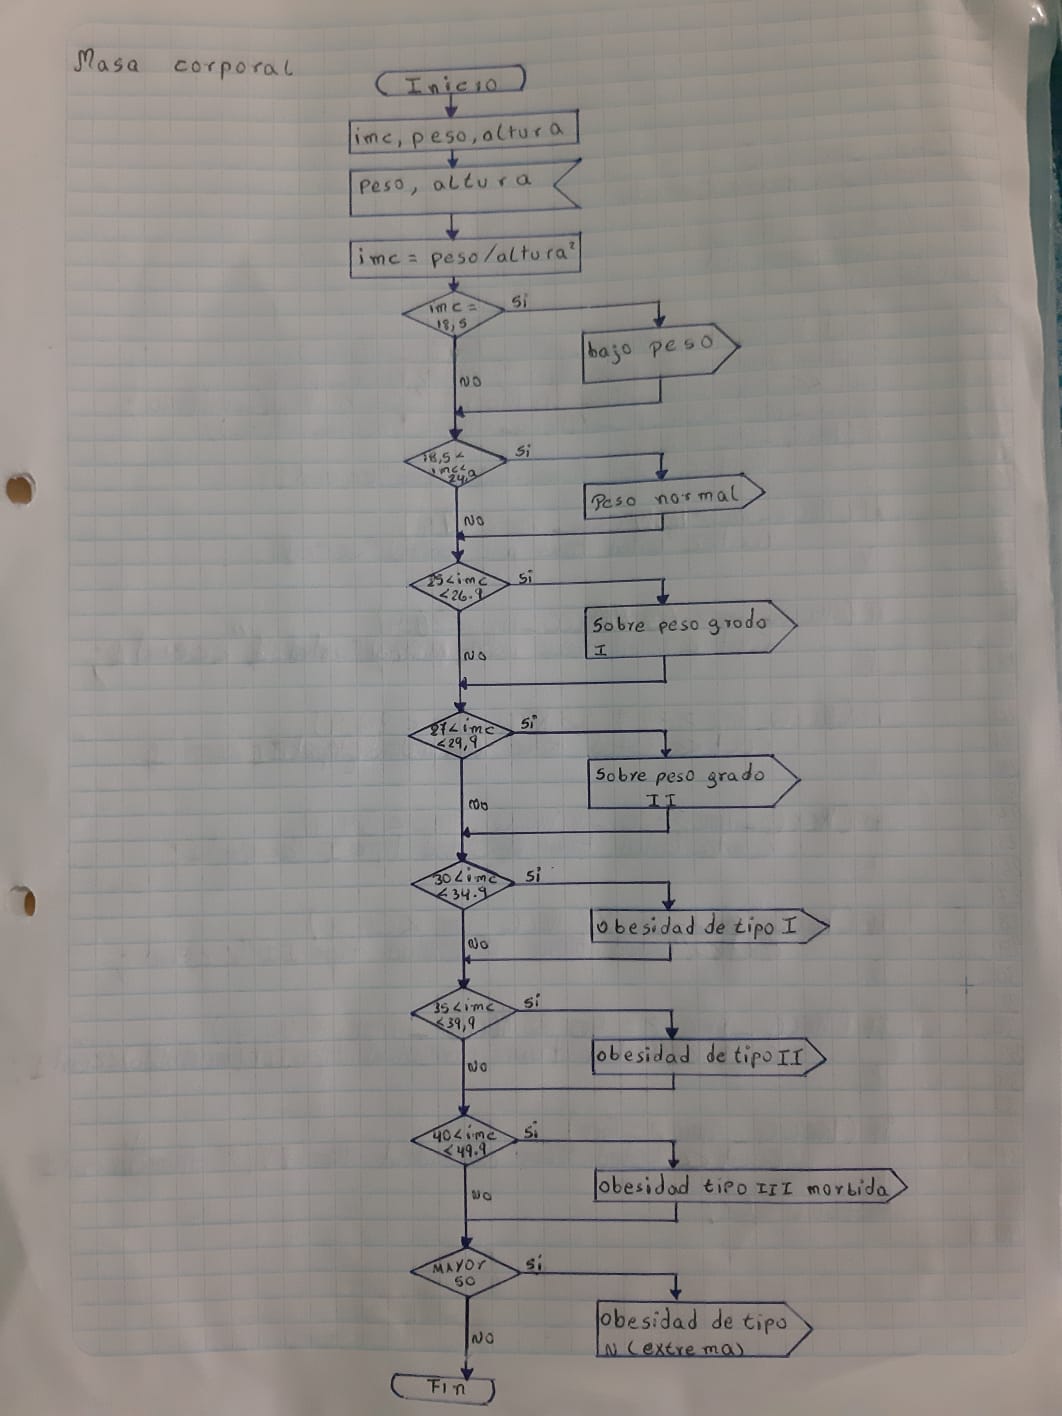 Masa corporal
Inicio
imc, peso, altura
Peso, altura
imc = peso/altura²
imc =
18,5
Si
bajo peso
NO
18,5 <
imc <
24,9
Si
Peso normal
NO
25 < imc
< 26.9
Si
Sobre peso grado
I
NO
27 < imc
< 29,9
Si
Sobre peso grado
II
No
30 < imc
< 34.9
Si
Obesidad de tipo I
NO
35 < imc
< 39,9
Si
obesidad de tipo II
NO
40 < imc
< 49.9
Si
obesidad tipo III morbida
NO
MAYOr
50
Si
obesidad de tipo
N (extrema)
NO
Fin